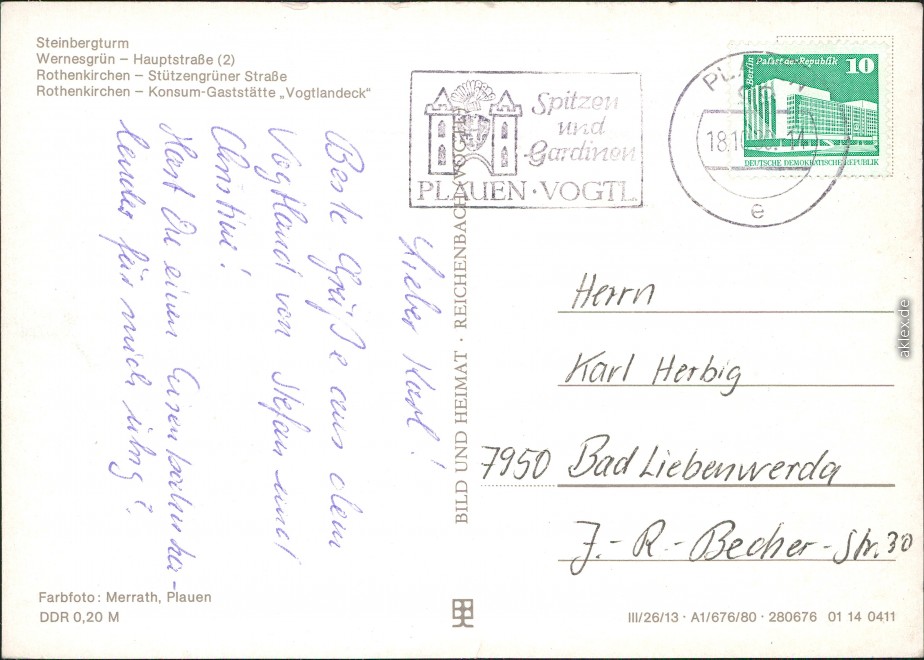 Steinbergturm
Wernesgrün – Hauptstraße (2)
Rothenkirchen – Stützengrüner Straße
Rothenkirchen – Konsum-Gaststätte „Vogtlandeck“
Spitzen
und
Gardinen
PLAUEN · VOGTL
PLA
18.10. 14
e
Berlin Palast der Republik 10
DEUTSCHE DEMOKRATISCHE REPUBLIK
Lieber Karl!
Beste Grüße aus dem
Vogtland von Stefan und
Christine!
Hast Du einen Eisenbahnka-
lender für mich übrig?
BILD UND HEIMAT · REICHENBACH VOGTL
Herrn
Karl Herbig
7950 Bad Liebenwerda
J.-R.-Becher-Str. 30
Farbfoto: Merrath, Plauen
DDR 0,20 M
III/26/13 · A1/676/80 · 280676 01 14 0411
aklex.de